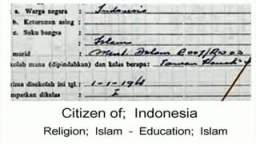 a. Warga negara : Indonesia
b. Keturunan asing :
c. Suku bangsa :
Islam
murid
kolah mana (dipindahkan) dan kelas berapa:
rima disekolah ini tgl : 1-1-196
mpatkan dikelas : I
Citizen of; Indonesia
Religion; Islam - Education; Islam